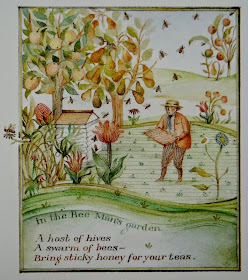 In the Bee Man's garden
A host of hives
A swarm of bees—
Bring sticky honey for your teas.